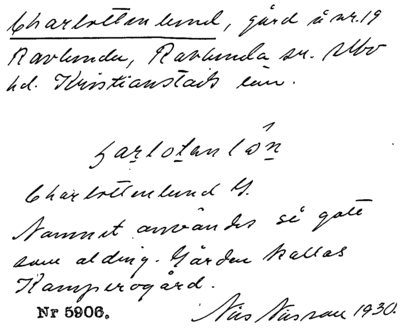 Charlottenlund, gård å nr. 19
Ravlunda, Ravlunda sn. Albo
hd. Kristianstads län.
Charlottenlund G.
Namnet användes så gott
som aldrig. Gården kallas
Kamperogård.
Nr 5906.
1930.